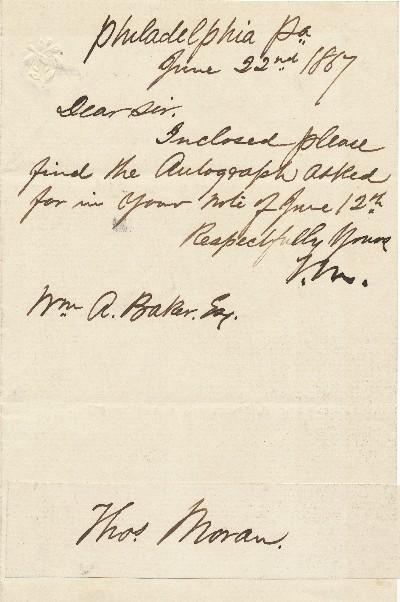 Philadelphia Pa
June 22nd 1867
Dear Sir.
Inclosed please
find the Autograph asked
for in your note of June 12th
Respectfully Yours
T.M.
Wm A. Baker. Esq.
Thos. Moran.